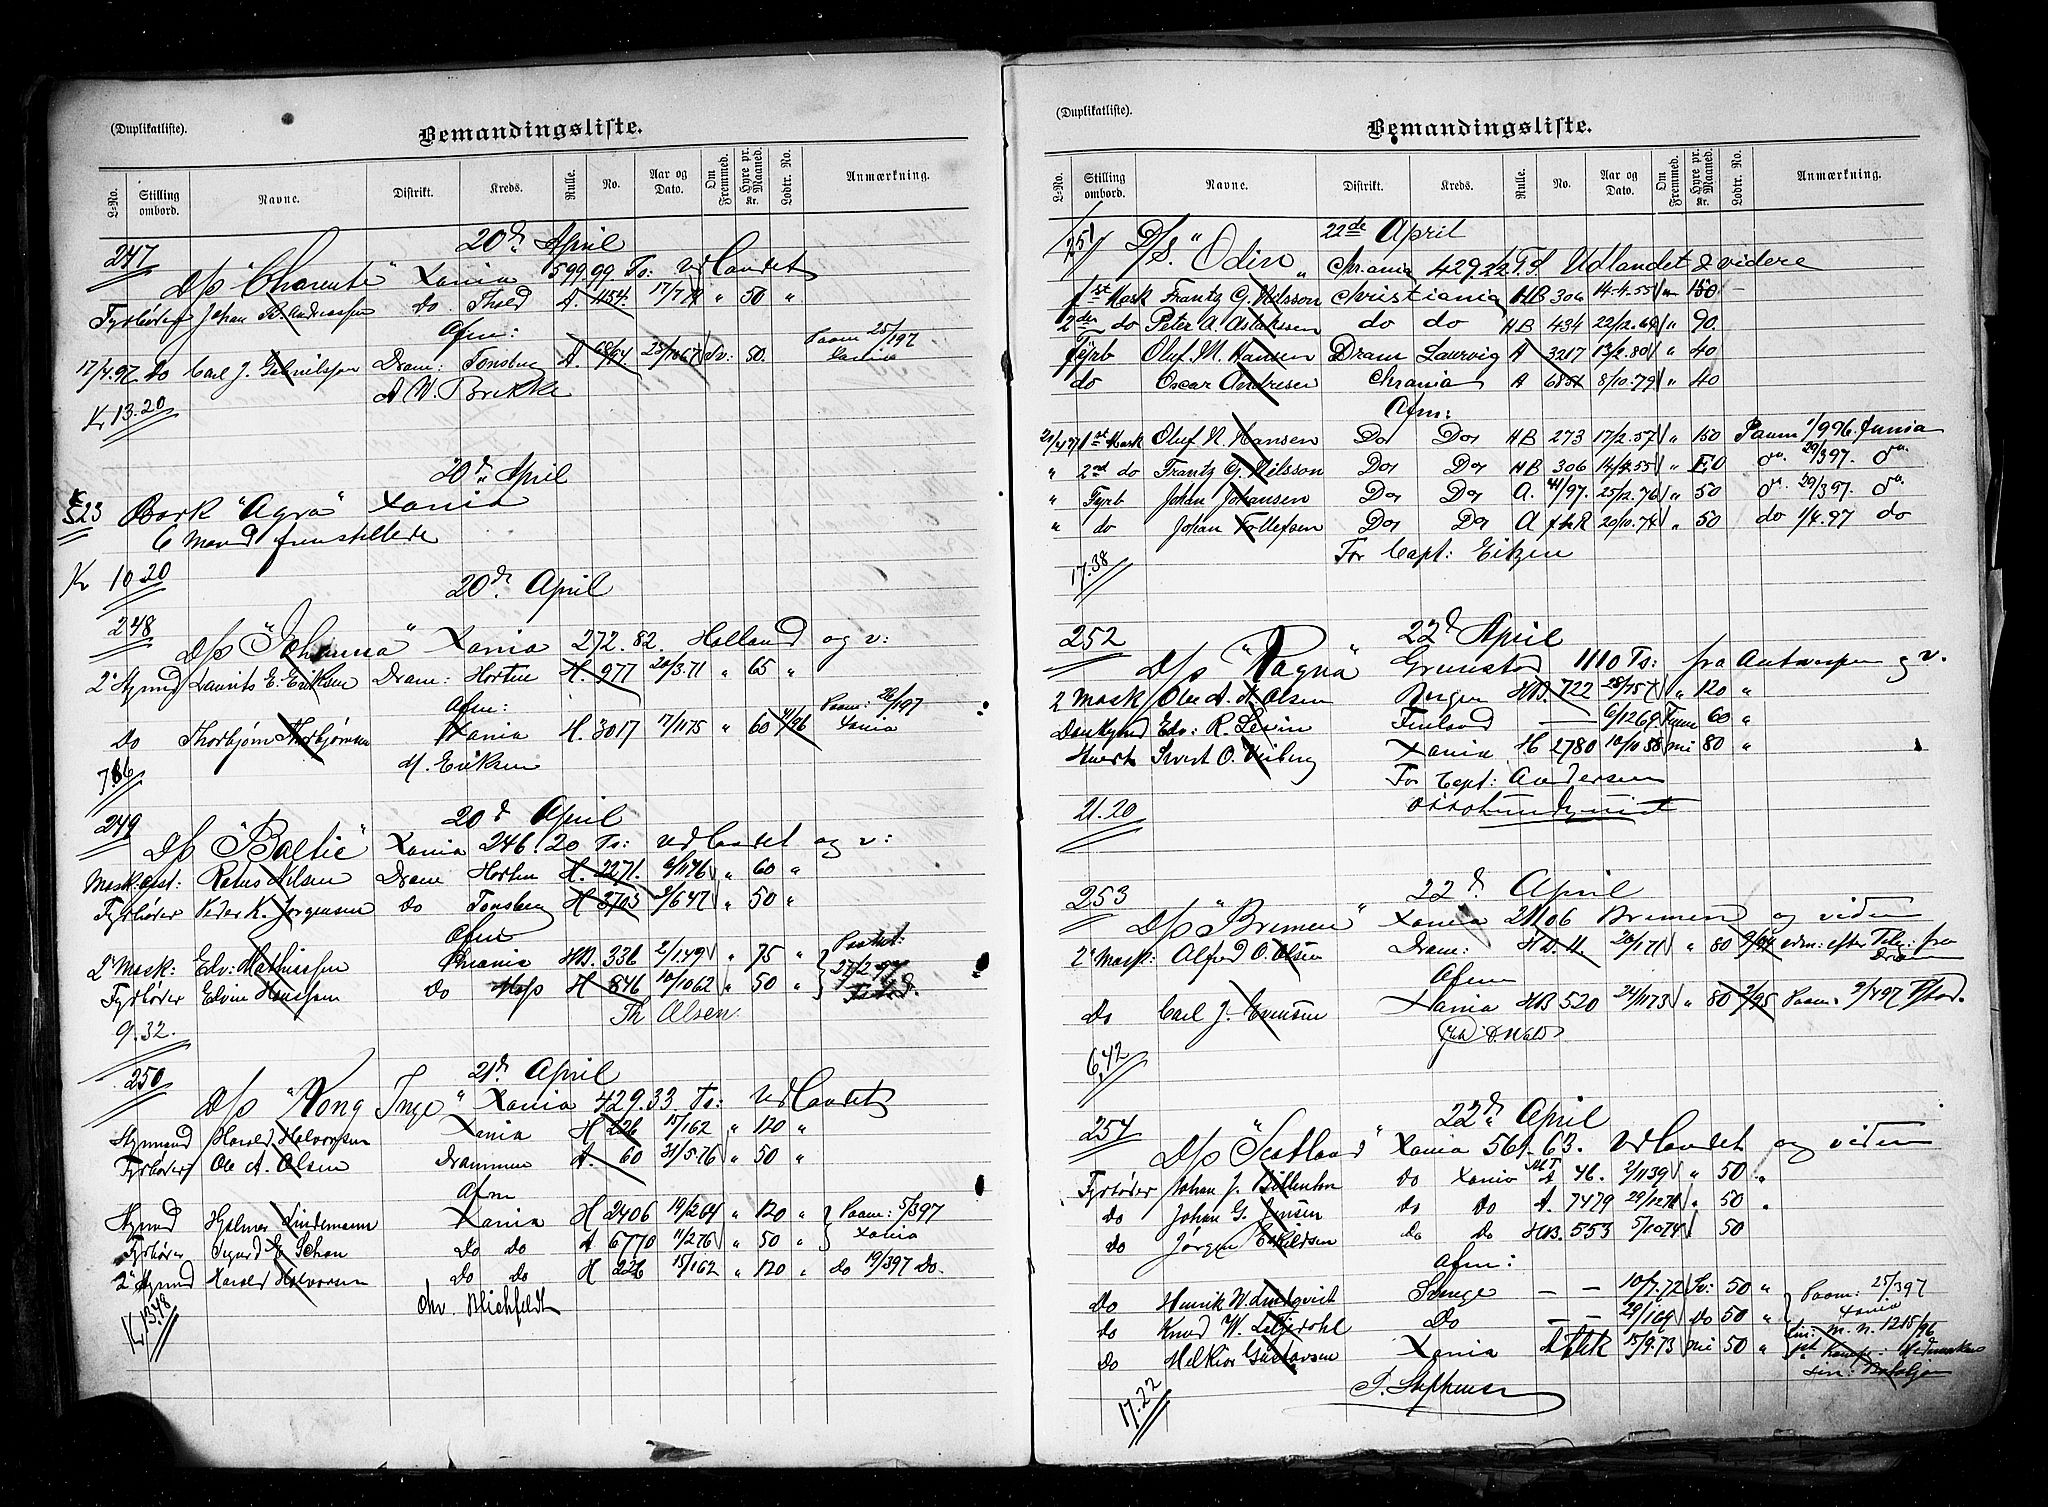 (Duplikatliste).
Bemandingsliste.
L-No. Stilling ombord. Navne. Distrikt. Kreds. Rulle. No. Aar og Dato. Om Fremmed. Hyre pr. Maaned. Kr. Lodtr. No. Anmærkning.
247 20d April
D/s "Charente" Xania 599.99 Ts: Udlandet
Fyrbøder Johan B. Andreassen do A. 1134 50 "
Afm:
17/4.97 Do Carl J. Gabrielsen Dram: Tønsberg A. 50. Paam 25/197 Xania
A. N. Brekke
Kr 13.20
20d April
523 Bark "Agra" Xania
6 Mand fremstillede
Kr 10.20
20d April
248
D/s "Johanna" Xania 272.82. Holland og v:
2 Styrmd Laurits E. Eriksen Dram: Horten H. 977 20/3.71 " 65 "
Afm:
Do Thorbjørn Thorbjørnsen Xania H. 3017 17/1175 " 60 Paam: 26/197 Xania
M. Eriksen
7.86
20d April
249
D/s "Baltic" Xania 246.20 Ts: Udlandet og v:
Mask: asst: Rasmus Nilsen Dram Horten H. 2271. 9/1176 " 60 "
Fyrbøder Peder K. Jørgensen Do Tønsberg H 3703 2/647 " 50 "
Afm
2 Mask: Edv: Mathiassen Khrania HB. 336 2/149 " 75 "
Fyrbøder Edvin Hanssen Do Moss H 846 10/1062 " 50 "
Th Olsen
9.32.
21d April
250
D/s "Kong Inge" Xania 429.33 Ts: Udlandet
Styrmand Harald Halvorsen Xania H 226 15/162 " 120 "
Fyrbøder Ole A. Olsen Drammen A. 60 31/5.76 " 50 "
Afm
Styrmd Hjalmar Lindemann Xania H 2406 19/264 " 120 " Paam: 5/397
Fyrbøder Sigurd E. Schou Do do A 6770 11/276 " 50 " Xania
2 Styrmd Harald Halvorsen Do do H 226 15/162 " 120 " Do 19/397 Do.
Chr. Blichfeldt
Kr 13.48
(Duplikatliste).
Bemandingsliste.
L-No. Stilling ombord. Navne. Distrikt. Kreds. Rulle. No. Aar og Dato. Om Fremmed. Hyre pr. Maaned. Kr. Lodtr. No. Anmærkning.
251 22de April
D/S. "Odin" Chrania 429.22 T.S Udlandet & videre
1st Mask Frantz G. Nilsson Christiania HB 306 14.4.55 " 150
2den do Peter A. Aslaksen do do HB 434 22/12.69 " 90.
Fyrb Oluf M. Hansen Dram Laurvig A 3217 13/2.80 " 40
do Oscar Andresen Chrania A 6851 8/10.79 " 40
Afm:
21/4.97 1st Mask Oluf N. Hansen Do Do HB 273 17/2.57 " 150 Paam 1/996 Xania
" 2nd do Frantz G. Nilsson Do Do HB 306 14/4.55 " 29/397. do
" Fyrb Johan Johansen Do Do A. 41/97. 25/2.76 " 50 do 29/397. do
" do Johan Tollefsen Do Do A f.h.R 20/10.74 " 50 do 1/4.97 do
For Capt: Eitzen
17.38
252 22d April
D/s "Ragna" Grimstad 1110 Ts: fra Antwerpen og v.
2 Mask Ole A. A. Olsen Bergen HB. 722 " 120 "
Donkymd Edv: R. Levin Finland 6/1269 60 "
Huert Sivert O. Viiberg Xania H 2780 10/10 88 80 "
For Capt: Andersen
21.20
253 22d April
D/s "Bremen" Xania 21106 Bremen og viden
2 Mask: Alfred O. Olsen Dram: 20/171 " 80 adm: efter Telg: fra
Afm
Do Carl J. Evensen Xania HB 520 24/1173 " 80 2/95 Paam. 9/497 Fstad.
6.42
254 22d April
D/s "Scotland" Xania 561.63. Udlandet og viden
Fyrbøder Johan J. do Xania A. 46. 2/1139 " 50 "
do Johan G. Jensen do Do A. 7479 29/1278 " 50 "
do Jørgen Eskildsen do do HB. 553 5/1074 50
Afm:
do Henrik W. Lindqvist – – 10/7.72 Sv: 50 " Paam: 25/397
do Knud W. Liljedahl Do – – 29/169 do 50 " Xania
do Melkior Gustavsen Xania 15/9.73 50 " m. n. 1215/96
17.22